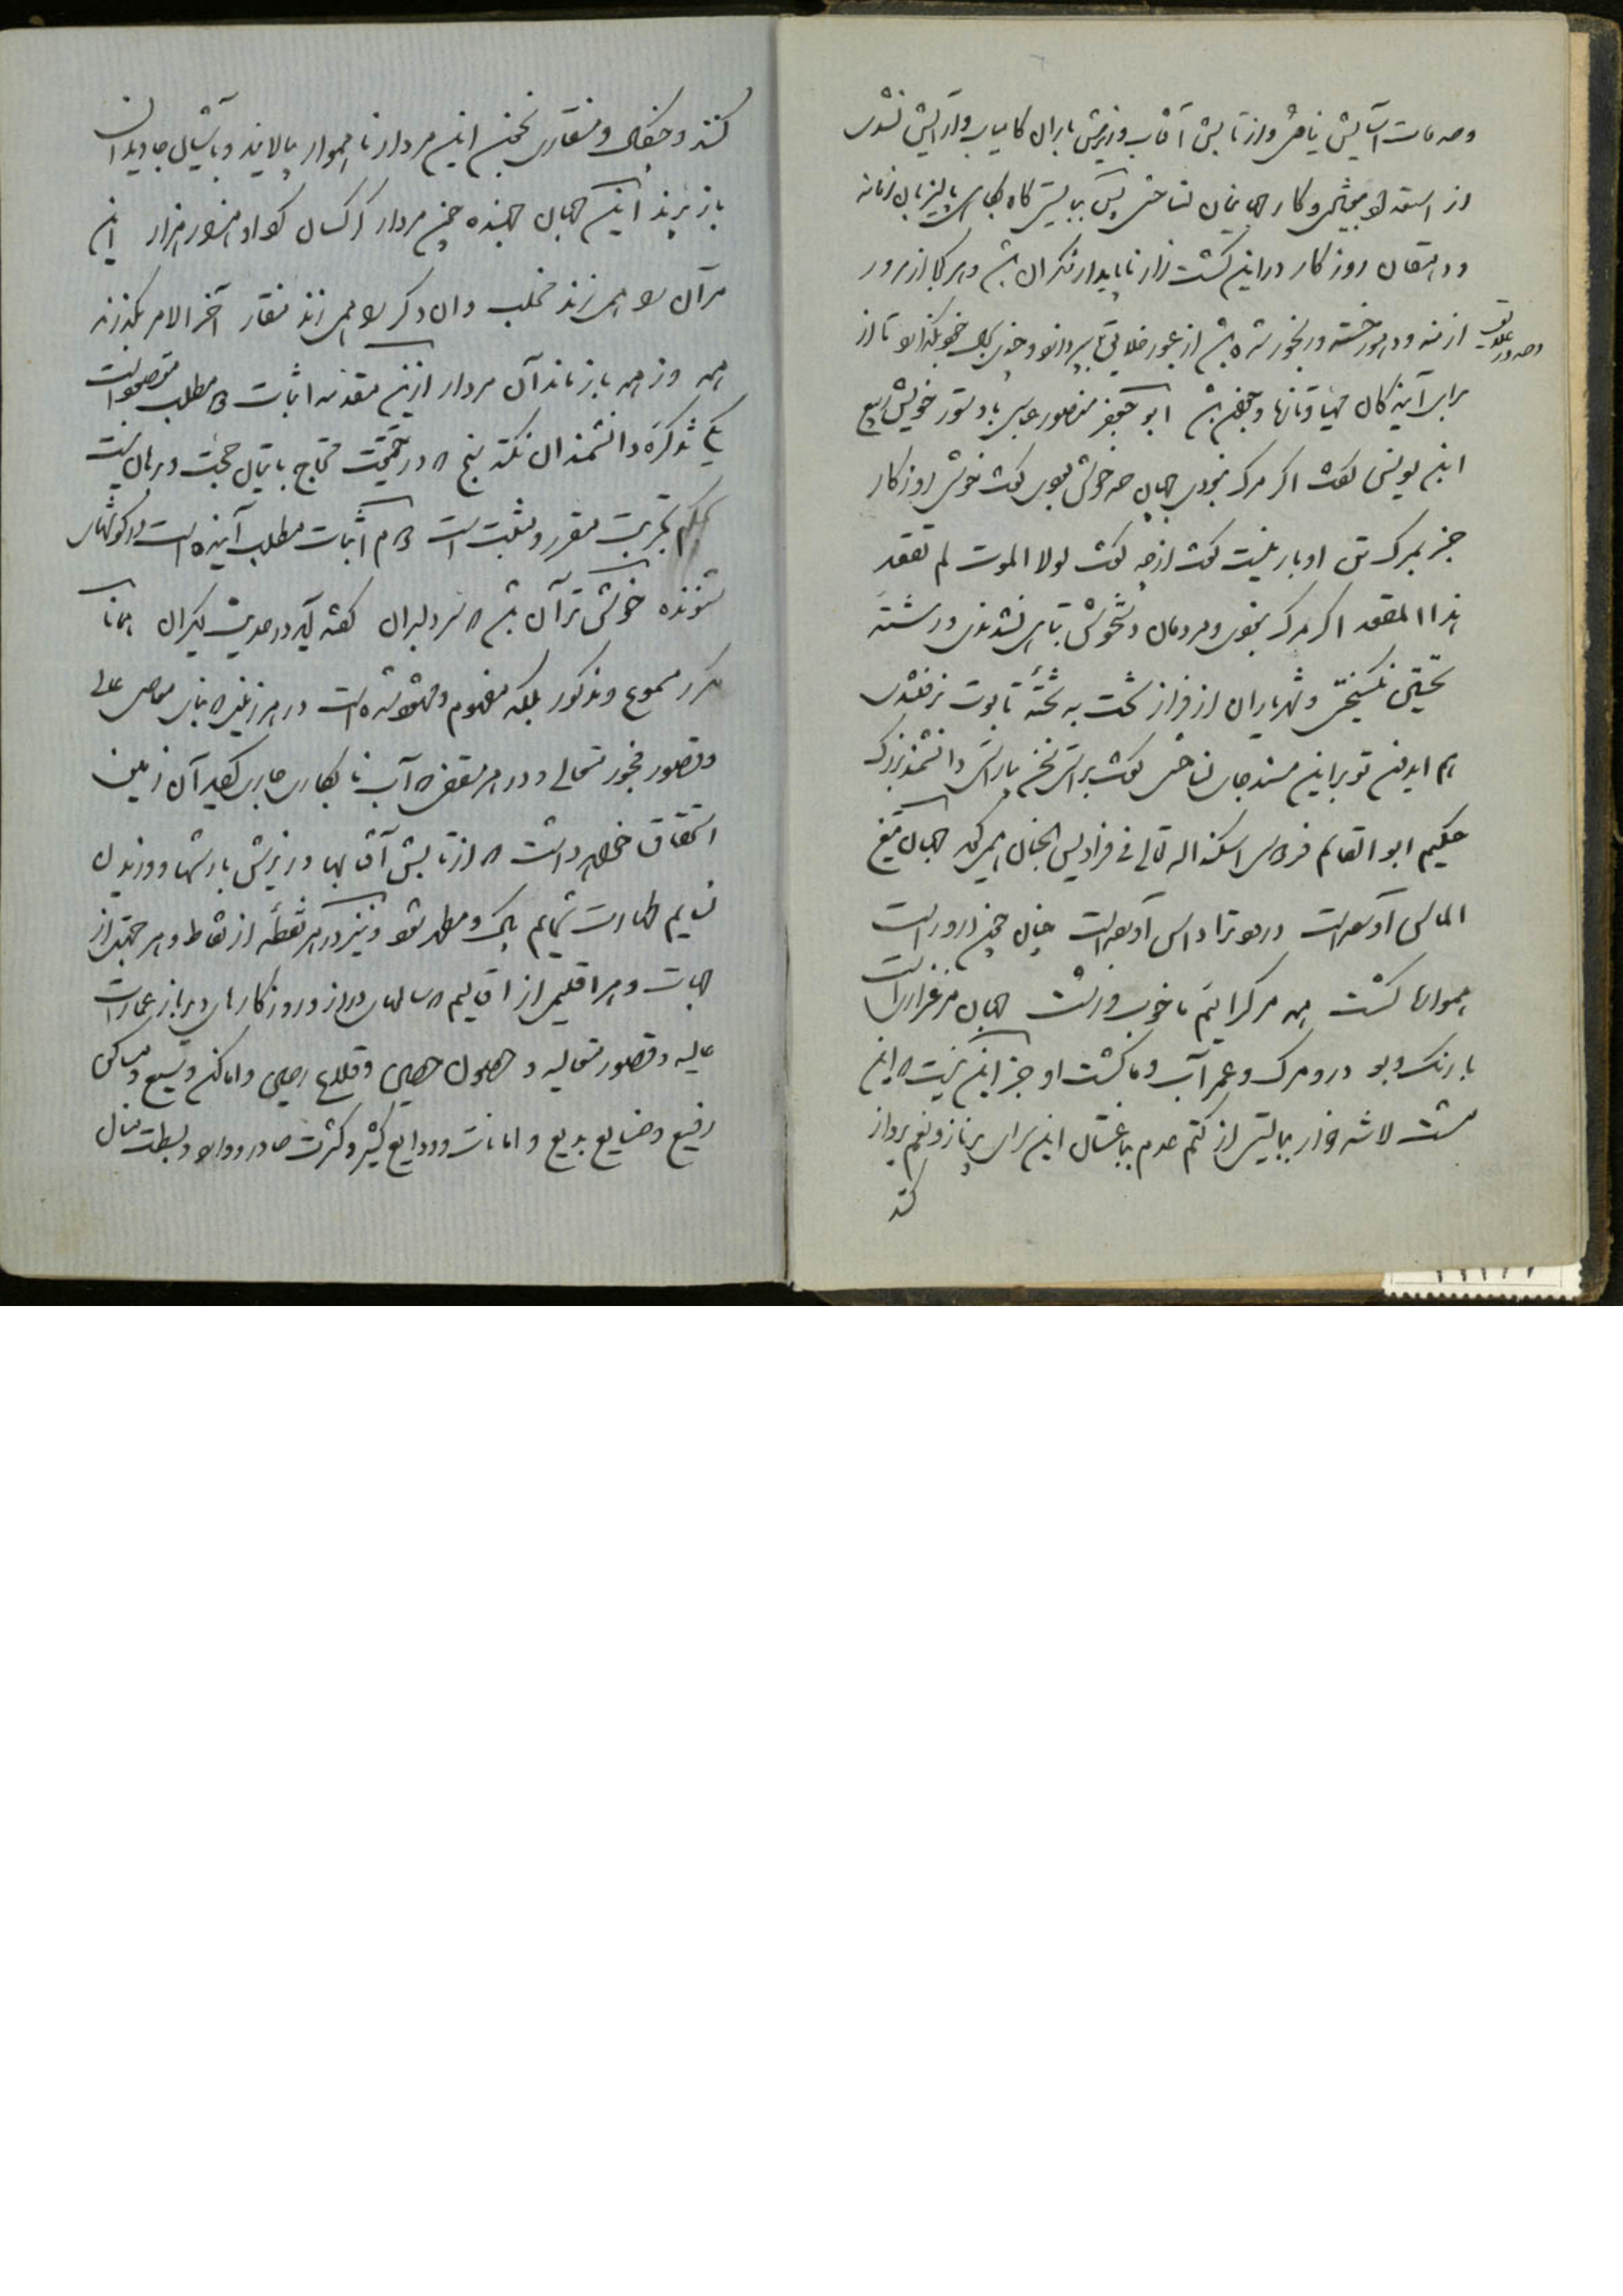 وصدمات آسایش یافتی و از تابش آفتاب و ریزش باران کامیاب و آرایش نشدی
از استعداد و کار جهانیان نساختی پس ببایستی کاه زمانه
و دهقان روزکار در این کشت زار ناپایدار نکران باشد و هر کجا از مرور
ازمنه و دهور خسته و رنجور شده باشد از عبور خلایق بپردازد و چندی بکذارد تا از
وصدور
برای آیندکان مهیا و تازه باشد ابو جعفر منصور عباسی با دستور خویش ربیع
ابن یونس کفت اکر مرک نبودی جهان چه خوش بودی کفت خوشی روزکار
جز بمرک تن او بار نیست کفت از چه کفت لولا الموت لم تقعد
هذا المقعد اکر مرک نبودی و مردمان دستخوش تباهی نشدندی و رشته
نکسیختی و شهریاران از فراز تخت به تخته تابوت نرفتندی
هم ایدون تو بر این مسند جای نساختی کفت براستی سخن یاراستی دانشمند بزرک
حکیم ابو القاسم فردوسی اسکنه اله تعالی فی فرادیس الجنان همی کوید جهان تیغ
الماس آورده است درو تو را داس آورده است چنان چون درو راست
هموار کشت همه مرک را ئیم ما خوب و زشت جهان مرغزاریست
با رنک و بو درو مرک و عمر آب و ما کشت او جز این نیست که این
مشت لاشه خوار ببایستی از کتم عدم باغتنال این سرای پر ناز و نعم پرواز
کند
کنند و چنکال و منقاری بخون این مردار ناهموار بیالایند و باشیان جاویدان
باز پرند این جهان جهنده چون مردار کرکسان کرد او هزار هزار این
مر آن را همی زند مخلب وان دکر را همی زند منقار آخر الامر بکذرند
همه وز همه باز ماند آن مردار ازین مقدمه اثبات مطلب مقصود است
بی تذکره دانشمندان نکته سنج که در حقیقت محتاج باتیان حجت و برهان نیست
بحکم تجربت مقرر و مثبت است و هم اثبات مطلب آینده است و در کوشهای
شنونده خوشتر آن باشد که سر دلبران کفته آید در حدیث دیکران همانا
مکرر مسموع و مذکور بلکه مفهوم و مشهود شده است در هر زمین که بنای معاصی عالی
و قصور فجور متعالی و در هر سقفی که آب نابکاری جاری کردید آن زمین
استحقاق خواهد داشت که از تابش آفتابها و ریزش بارشها و وزیدن
نسایم طهارت شمایم پاک و مطهر شود و نیز در هر نقطه از نقاط و هر جهتی از
جهات و هر اقلیمی از اقالیم که سالهای دراز و روزکارهای دیرباز عمارات
عالیه و قصور متعالیه و حصون حصین و قلاع رصین و اماکن وسیع و مساکن
رفیع و ضیایع بدیع و امانات و ودایع کثیر و کثرت صادر و وارد و بسطت منال